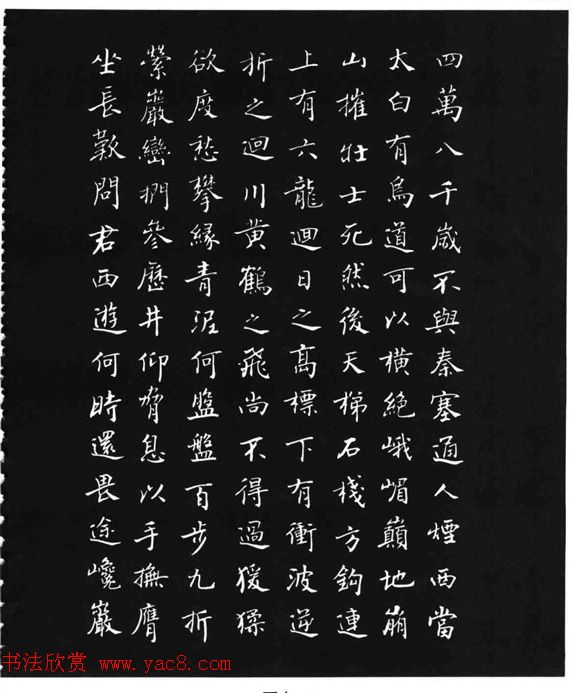 四萬八千歲不與秦塞通人煙西當
太白有鳥道可以橫絕峨嵋巔地崩
山摧壯士死然後天梯石棧方鉤連
上有六龍迴日之高標下有衝波逆
折之迴川黃鶴之飛尚不得過猨猱
欲度愁攀緣青泥何盤盤百步九折
縈巖巒捫參歷井仰脅息以手撫膺
坐長歎問君西遊何時還畏途巉巖
书法欣赏 www.yac8.com